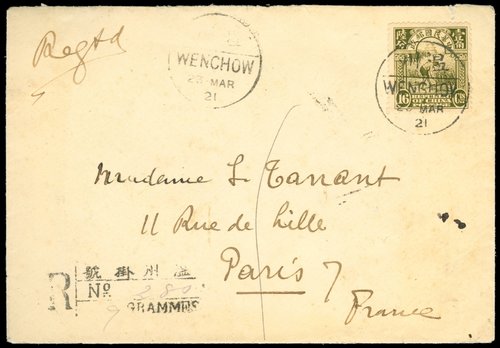 Regtd
WENCHOW
23 MAR
21
溫州
WENCHOW
23 MAR
21
16
REPUBLIC
OF CHINA
Madame L. Tarrant
11 Rue de Lille
Paris 7
France
號掛州溫
R
No 380
GRAMMES